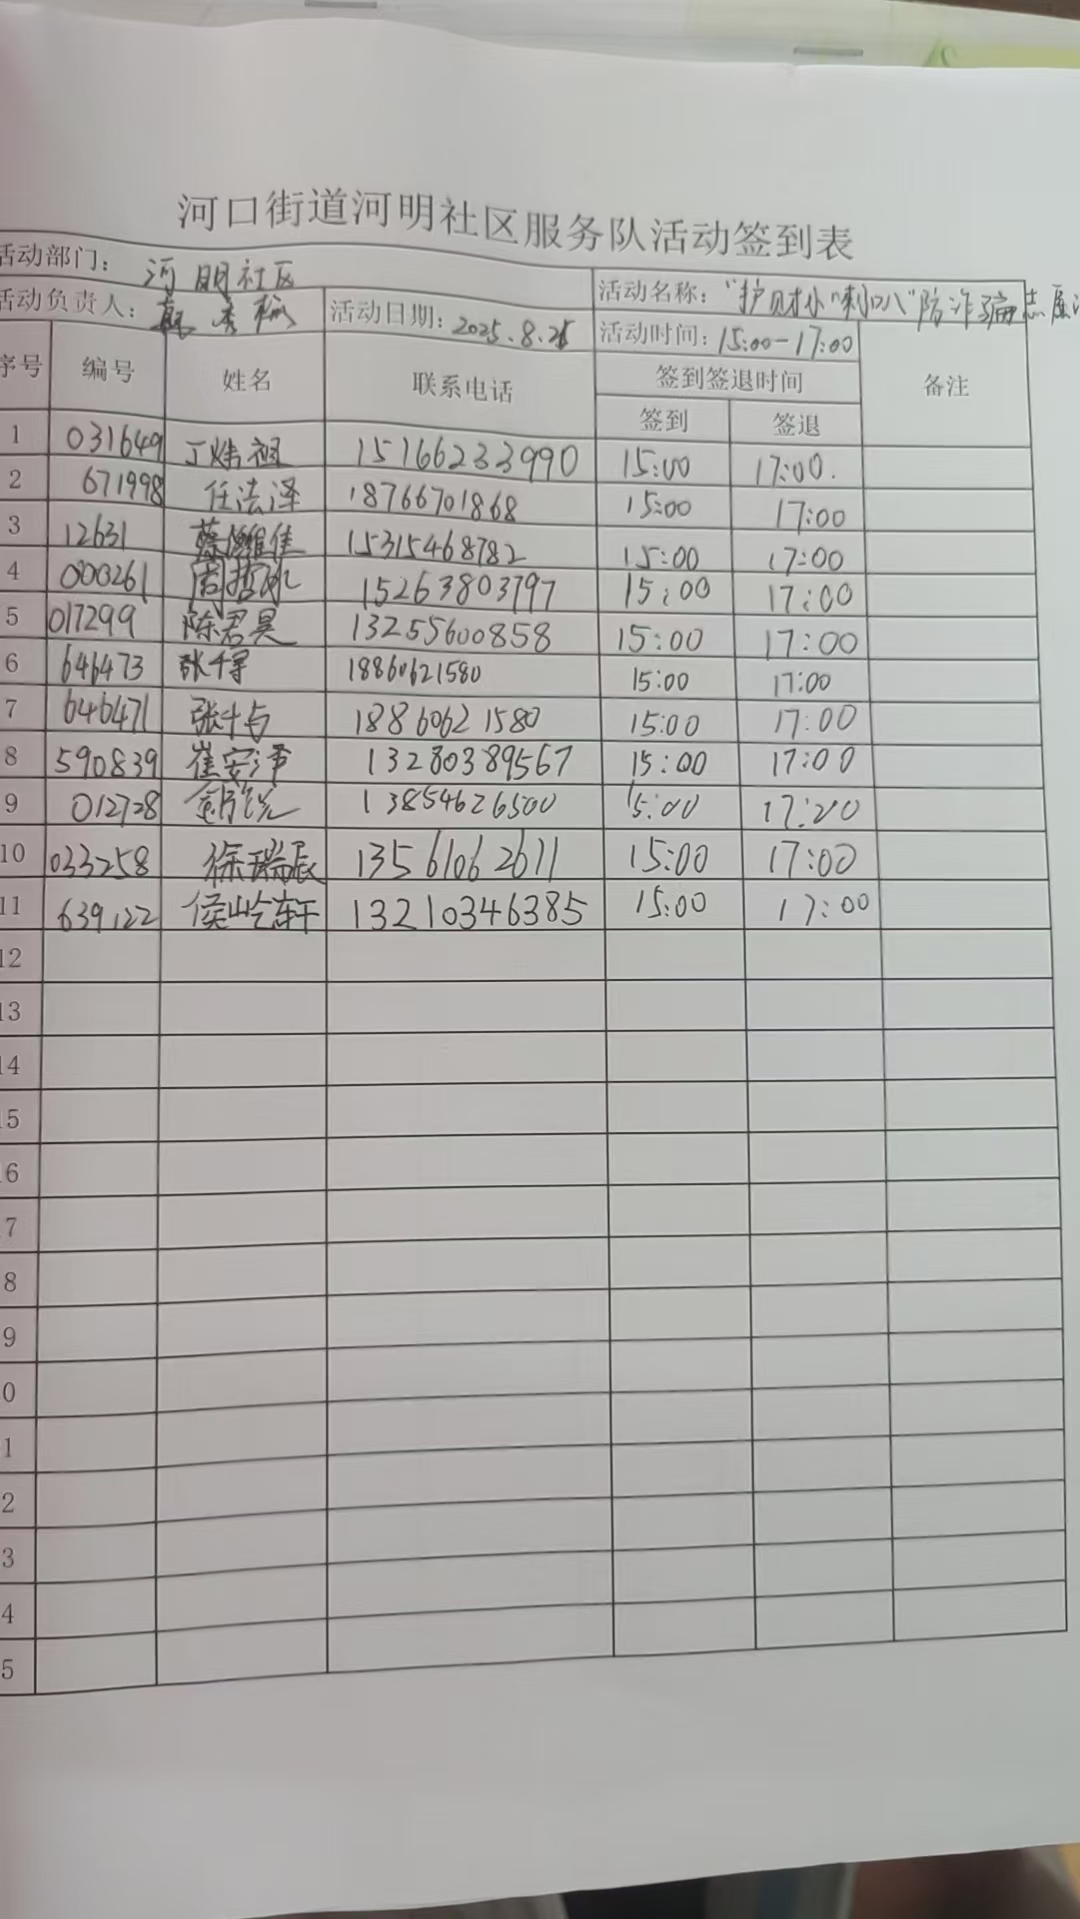 河口街道河明社区服务队活动签到表
活动部门: 河明社区
活动名称: “护财小喇叭”防诈骗志愿
活动负责人:
活动日期: 2025.8.
活动时间: 15:00-17:00
序号 编号 姓名 联系电话 签到签退时间 备注
签到 签退
1 031649 丁炜祖 15166233990 15:00 17:00.
2 671998 任法泽 18766701868 15:00 17:00
3 12631 佳 15315468782 15:00 17:00
4 000261 周哲冰 15263803797 15:00 17:00
5 017299 陈君昊 13255600858 15:00 17:00
6 646473 张千 18860621580 15:00 17:00
7 646471 张 18860621580 15:00 17:00
8 590839 崔安泽 13280389567 15:00 17:00
9 012728 13854626500 15:00 17:20
10 033258 徐瑞辰 13561062611 15:00 17:00
11 639122 侯屹轩 13210346385 15:00 17:00
12
13
14
15
16
7
8
9
0
1
2
3
4
5